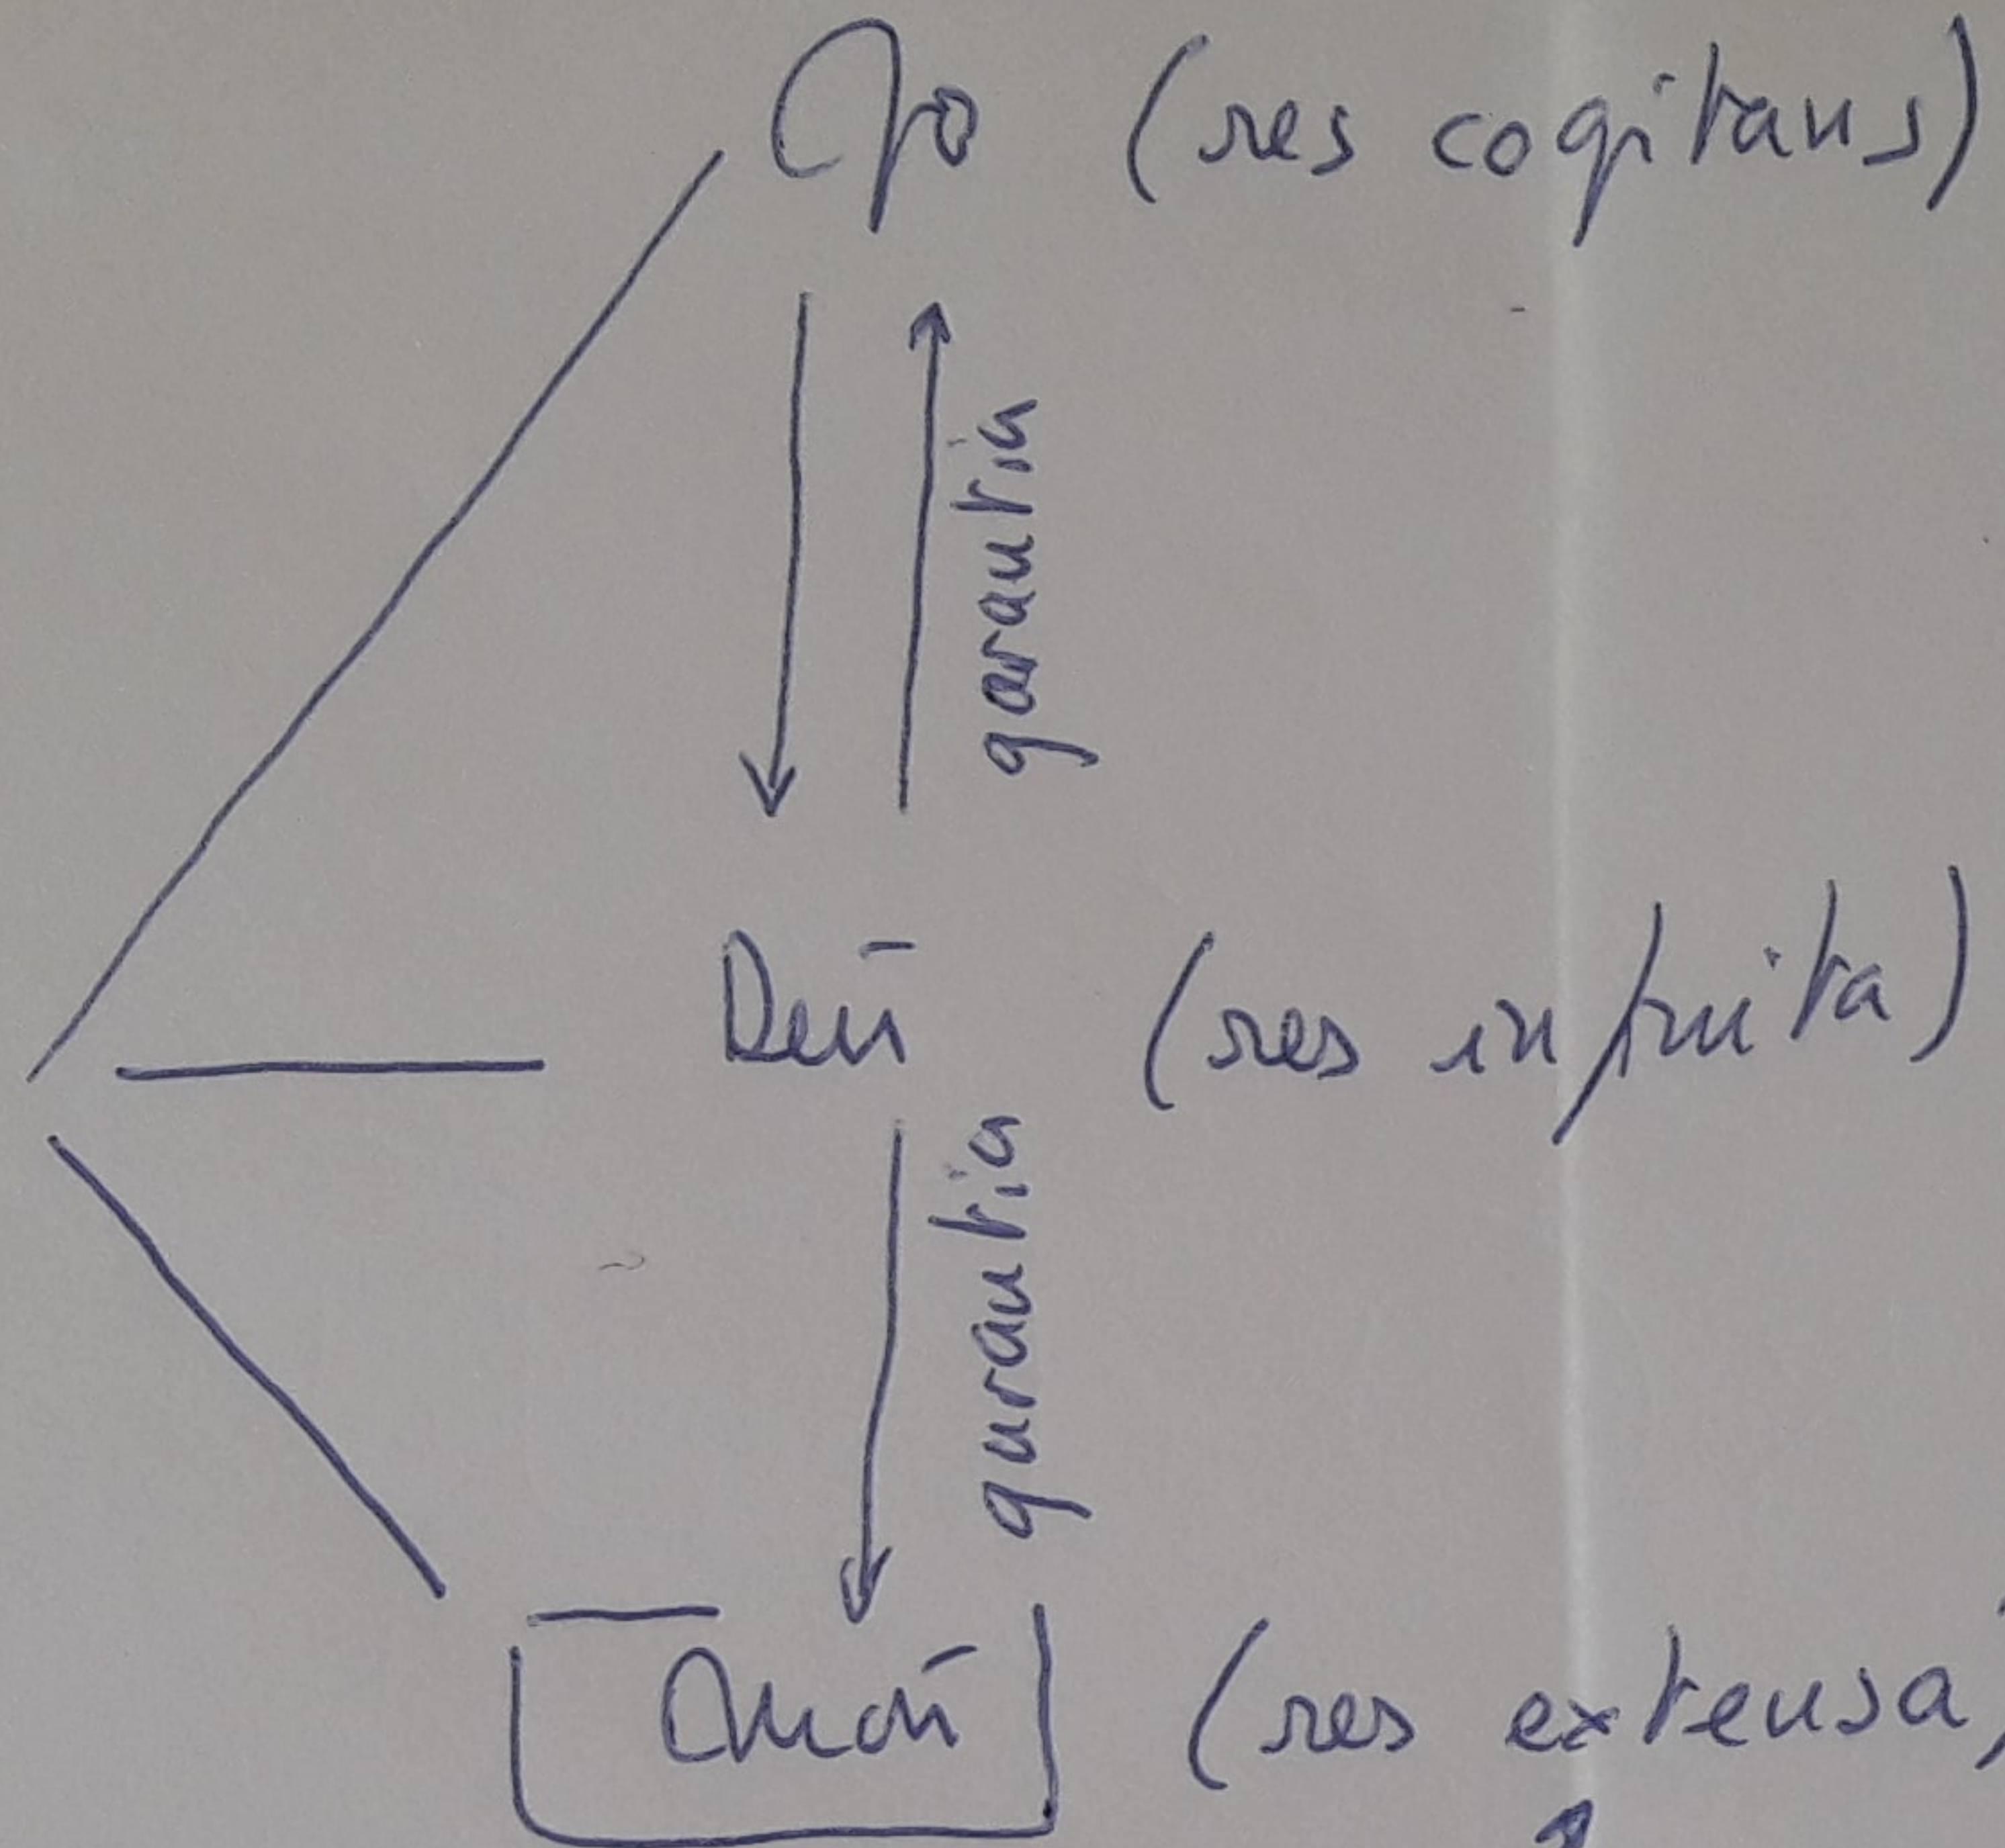 Jo (res cogitans)
garantia
Déu (res infinita)
garantia
Món (res extensa)